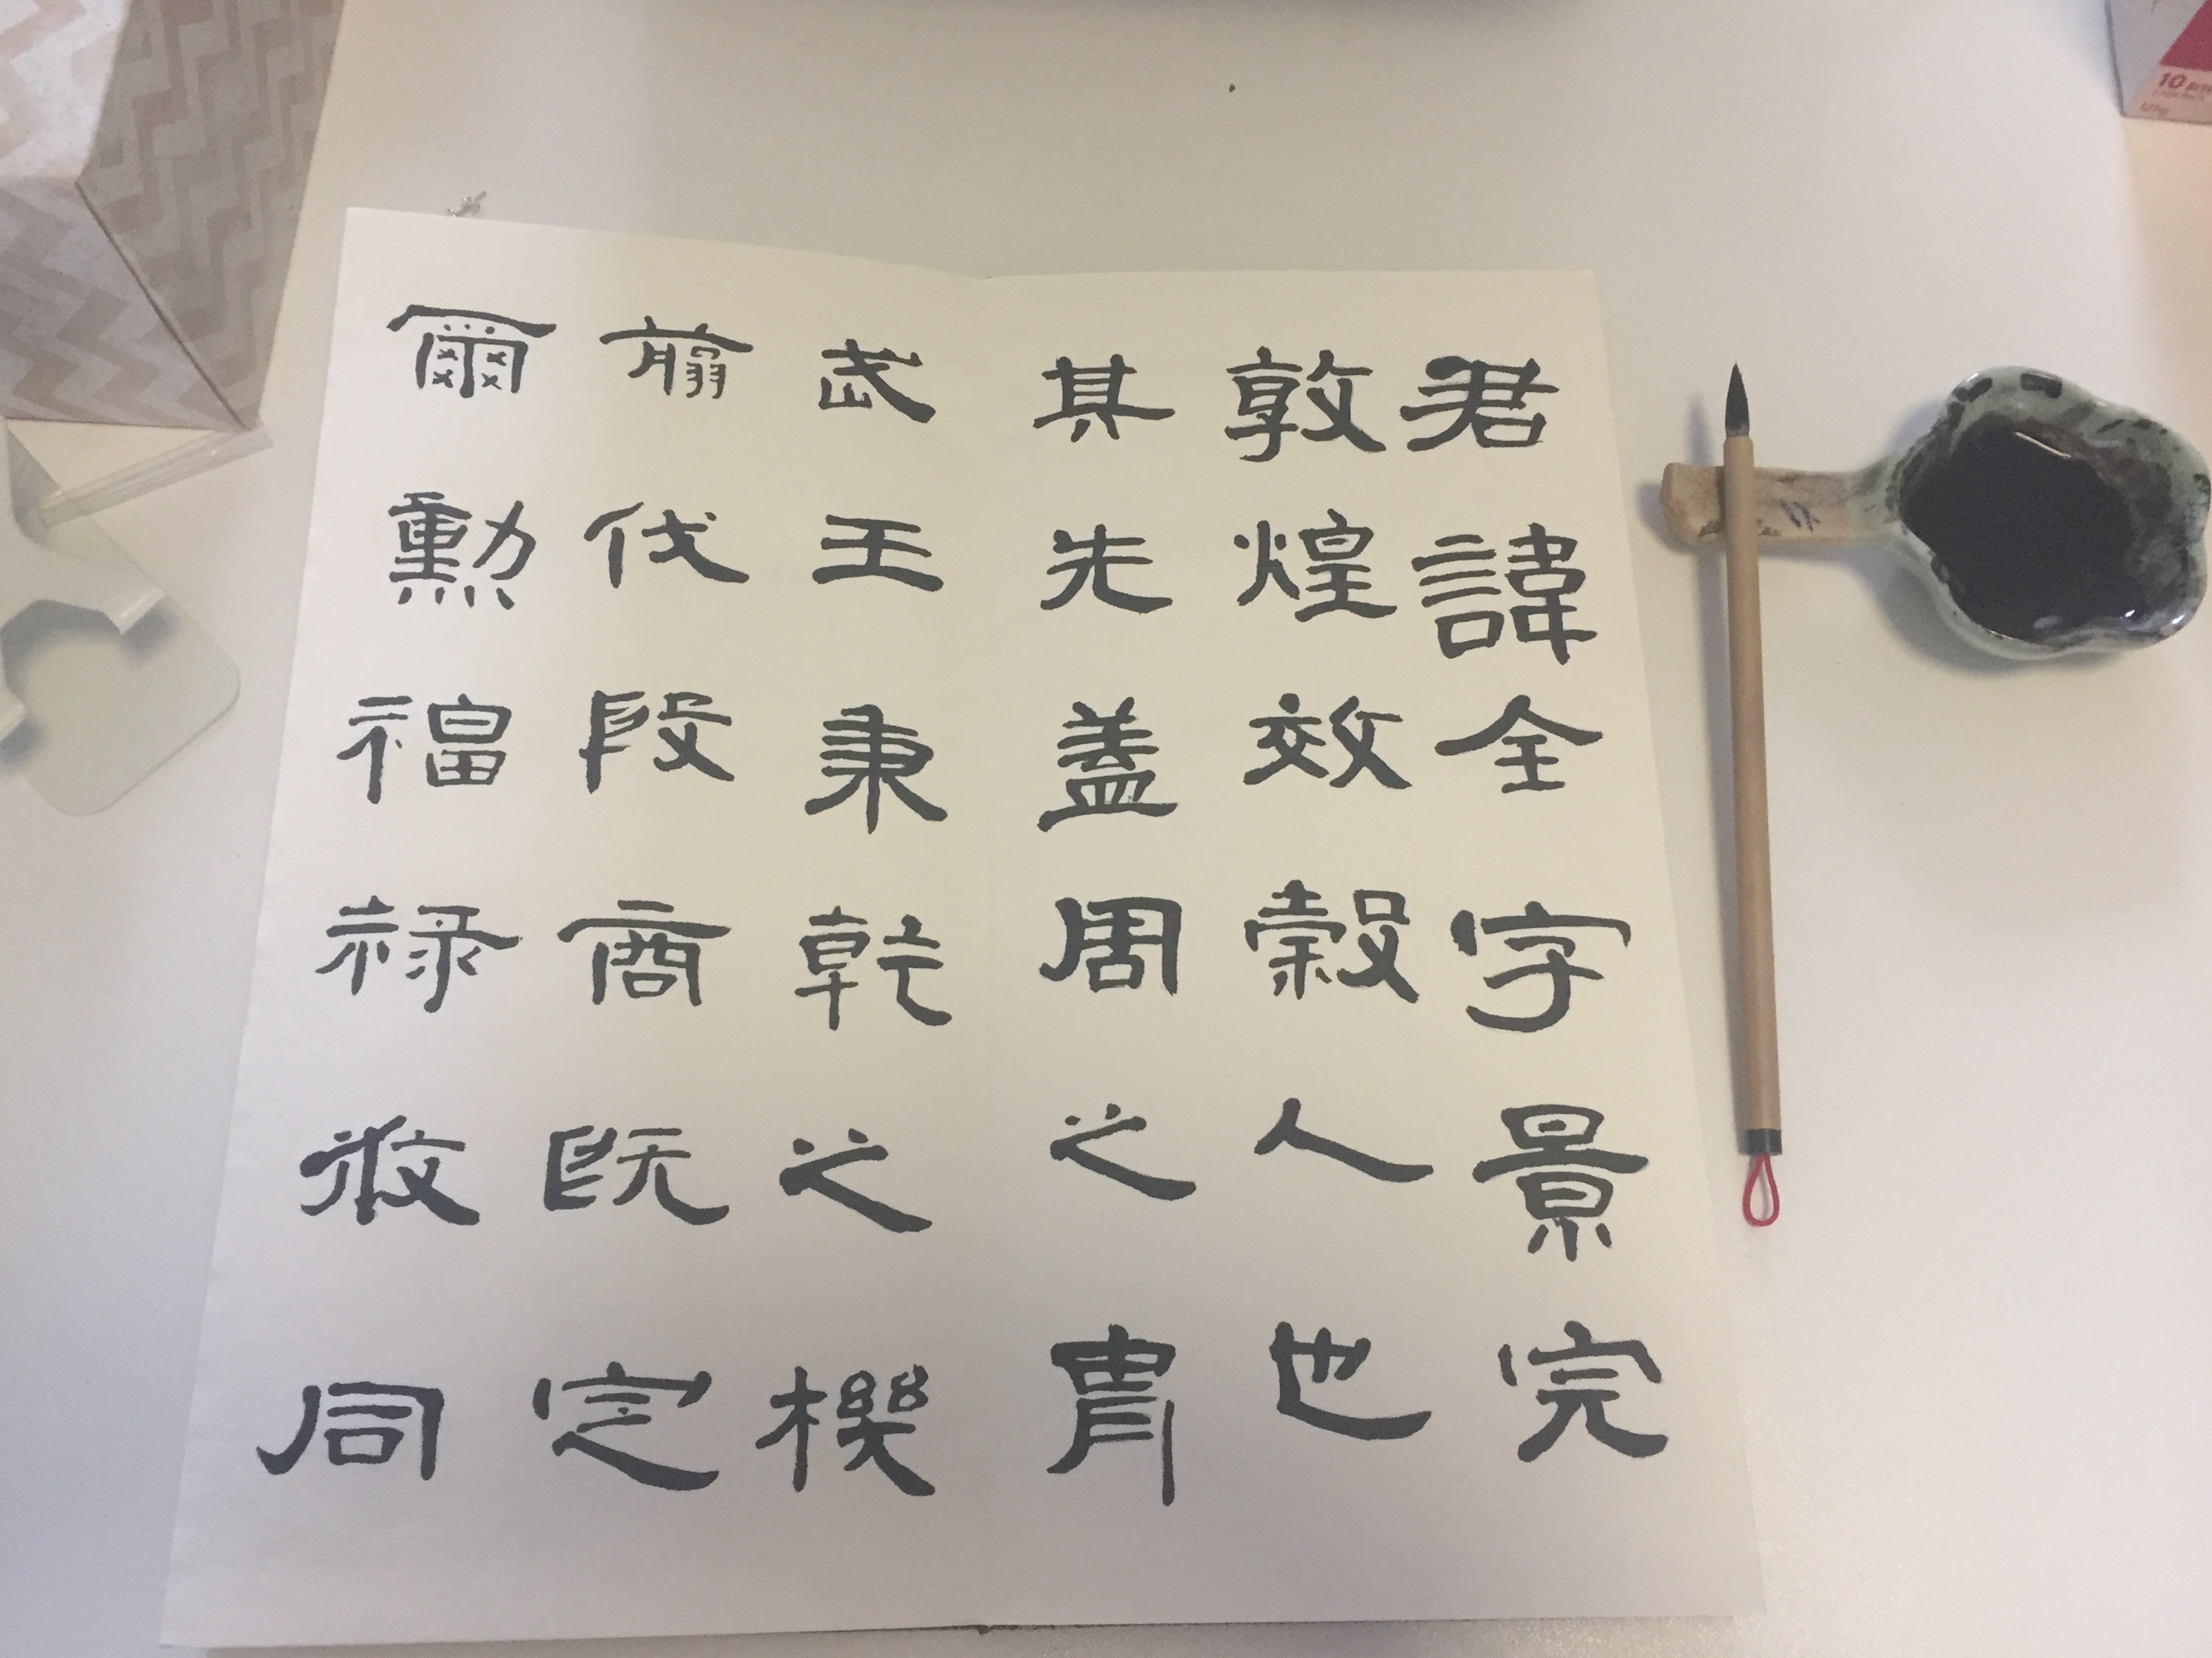 君諱全字景完
敦煌效穀人也
其先蓋周之胄
武王秉乾之機
翦伐殷商既定
爾勲福禄攸同
10